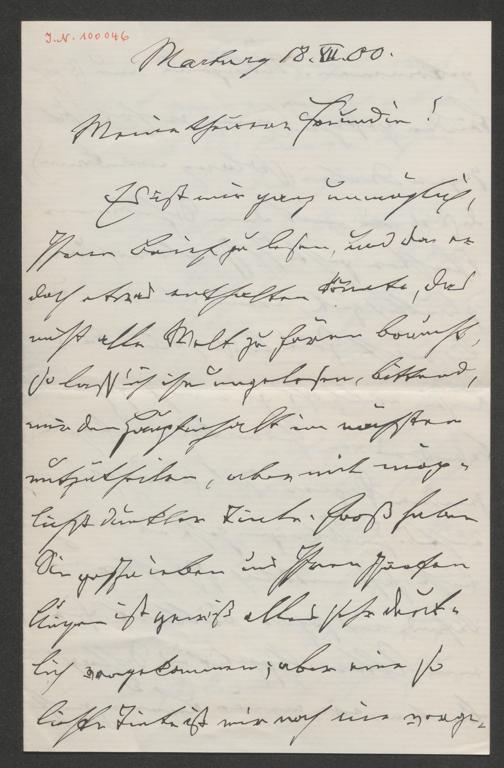 J.N. 100046
Marburg 18. VII. 00.
Meine theueren Freundin!
Es ist mir ganz unmöglich,
Ihren Brief zu lesen, und da er
doch etwas enthalten könnte, das
nicht alle Welt zu hören braucht,
so lass' ich ihn ungelesen, bittend,
mir den Hauptinhalt im nächsten
mitzutheilen, aber mit mög-
lichst dunkler Tinte. Groß haben
Sie geschrieben und Ihren scharfen
Augen ist gewiß alles sehr deut-
lich vorgekommen; aber eine so
lichte Tinte ist mir noch nie vorge-